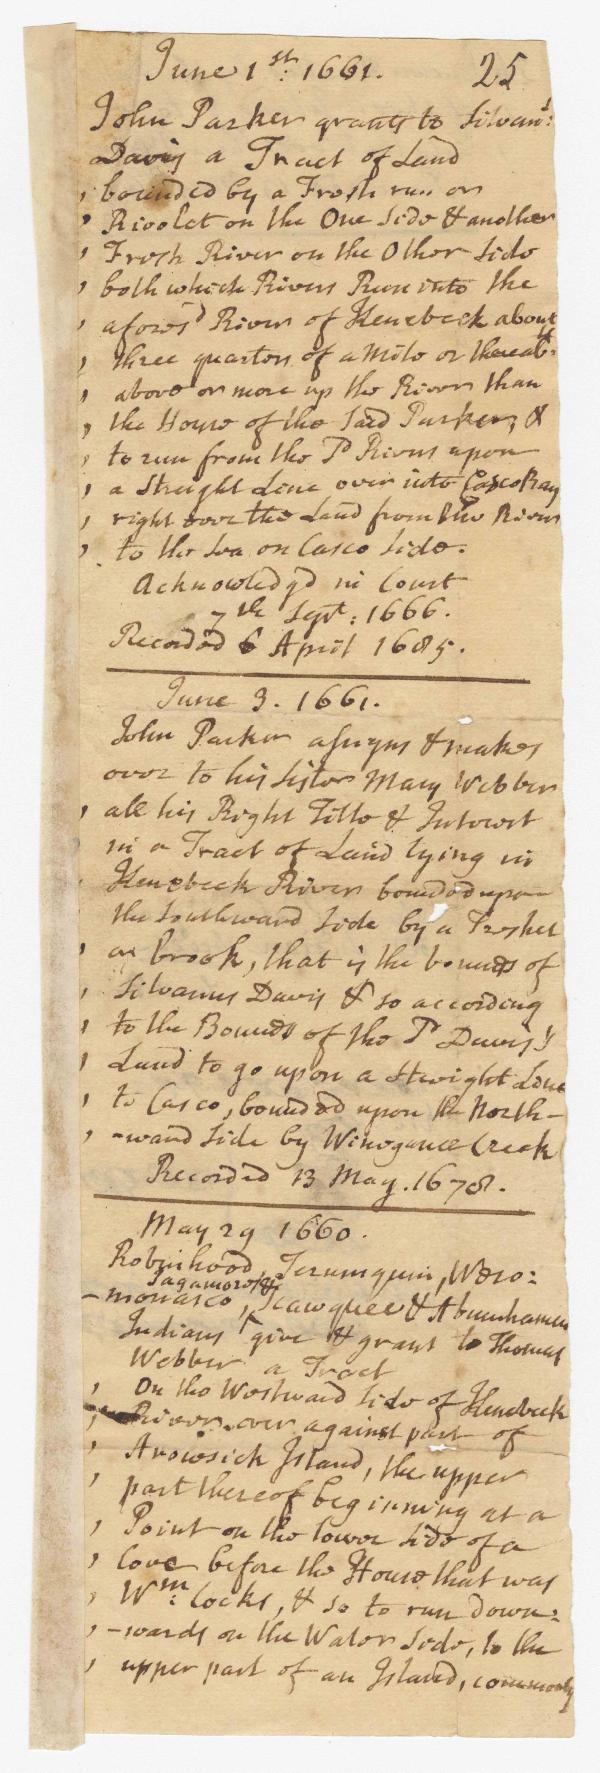 June 1st: 1661. 25
John Parker grants to Silvans:
Davis a Tract of Land
, bounded by a Fresh run or
, Rivolet on the One Side & another
, Fresh River on the Other Side
, both which Rivers Run into the
, afores'd River of Kenebeck about
, three quarters of a Mile or thereab:ts
, above or more up the River than
, the House of the Said Parker, &
, to run from the Sd Rivers upon
, a Streight Line over into Casco Bay
, right over the Land from the River
, to the Sea on Casco Side.
Acknowledg'd in Court
7th Sept: 1666.
Recorded 6 April 1685.
June 3. 1661.
John Parker assigns & makes
over to his Sister Mary Webber
, all his Right Title & Interest
in a Tract of Land lying in
Kenebeck River bounded upon
the Southward Side by a Freshet
, or brook, that is the bounds of
, Silvanus Davis & so according
, to the Bounds of the Sd Davis's
, Land to go upon a Streight Line
, to Casco, bounded upon the North-
, -ward Side by Winegance Creek
Recorded 13 May. 1678.
May 29 1660.
Robinhood, Terumquin, Weso:
Sagamores &
-monasco, Scawquee & Abunhamen
Indians ^ give & grant to Thomas
Webber a Tract
, On the Westward Side of Kenebeck
, River over against part of
, Arowsick Island, the upper
, part thereof beginning at a
, Point on the lower Side of a
, Cove before the House that was
, Wm: Cocks, & so to run down:
, -wards on the Water Side, to the
, upper part of an Island, commonly